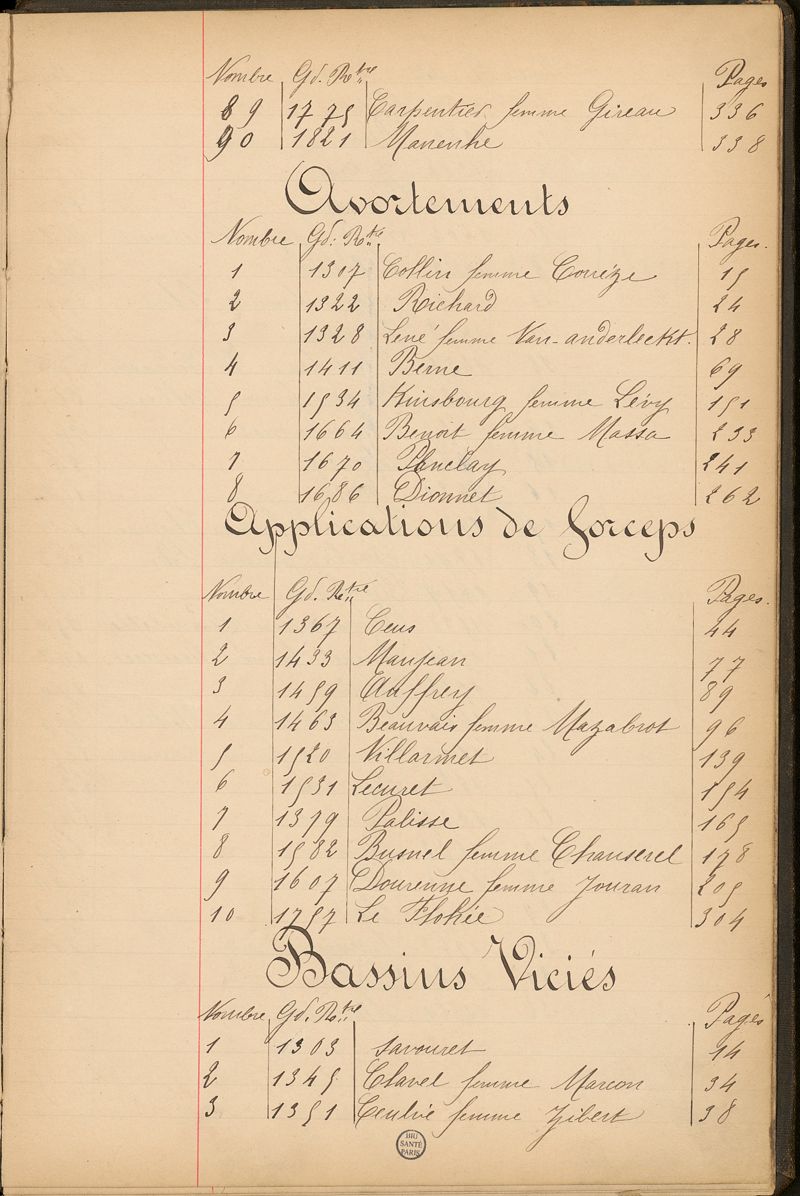 Nombre Gd. Rtre Pages
89 1775 Carpentier femme Gireau 336
90 1821 Manenhe 338
Avortements
Nombre Gd. Rtre Pages.
1 1307 Collin femme Corrèze 15
2 1322 Richard 24
3 1328 Lené femme Van-anderleckt. 28
4 1411 Berne 69
5 1534 Kinsbourg femme Lévy 151
6 1664 Benoit femme Massa 233
7 1670 Penclay 241
8 1686 Dionnet 262
Applications de forceps
Nombre Gd. Rtre Pages.
1 1367 Ceus 44
2 1433 Manjean 77
3 1459 Auffrey 89
4 1463 Beauvais femme Mazabrot 96
5 1520 Villarmet 139
6 1531 Lecuret 154
7 1379 Palisse 165
8 1582 Busnel femme Chanserel 178
9 1607 Dourenne femme Jouran 205
10 1757 Le Flohée 304
Bassins Viciés
Nombre Gd. Rtre Pages
1 1303 Savouret 14
2 1345 Clavel femme Marcon 34
3 1351 femme Jibert 38
BIU
SANTÉ
PARIS